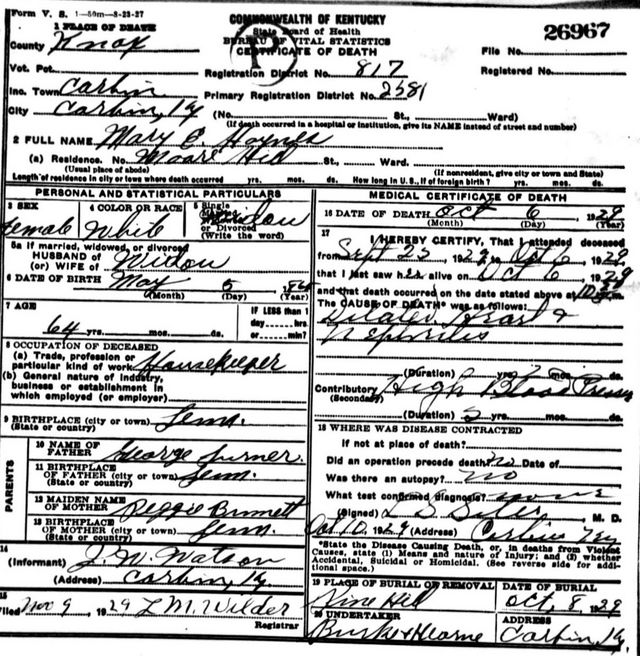 Form V. S. 1-50m-8-23-27
COMMONWEALTH OF KENTUCKY
State Board of Health
BUREAU OF VITAL STATISTICS
CERTIFICATE OF DEATH
P
26967
File No.
Registered No.
1 PLACE OF DEATH
County Knox
Vot. Pct.
Registration District No. 817
Inc. Town Corbin
Primary Registration District No. 2381
City Corbin, Ky (No. St., Ward)
(If death occurred in a hospital or institution, give its NAME instead of street and number)
2 FULL NAME Mary E. Haynes
(a) Residence. No. Moore Hill St., Ward.
(Usual place of abode) (If nonresident, give city or town and State)
Length of residence in city or town where death occurred yrs. mos. ds. How long in U. S., if of foreign birth? yrs. mos. ds.
PERSONAL AND STATISTICAL PARTICULARS
3 SEX
Female
4 COLOR OR RACE
White
5 Single
Widow
or Divorced
(Write the word)
5a If married, widowed, or divorced
HUSBAND of
(or) WIFE of Widow
6 DATE OF BIRTH May 5
(Month) (Day) (Year)
7 AGE
64 yrs. mos. ds.
IF LESS than 1
day hrs.
or min?
8 OCCUPATION OF DECEASED
(a) Trade, profession or
particular kind of work Housekeeper
(b) General nature of industry,
business or establishment in
which employed (or employer)
9 BIRTHPLACE (city or town) Tenn.
(State or country)
PARENTS
10 NAME OF
FATHER George Turner
11 BIRTHPLACE
OF FATHER (city or town) Tenn.
(State or country)
12 MAIDEN NAME
OF MOTHER Peggie Burnett
13 BIRTHPLACE
OF MOTHER (city or town) Tenn.
(State or country)
14
(Informant) J. W. Watson
(Address) Corbin, Ky.
15
Filed Nov 9, 1929 L M. Wilder
Registrar
MEDICAL CERTIFICATE OF DEATH
16 DATE OF DEATH Oct 6 1929
(Month) (Day) (Year)
17
I HEREBY CERTIFY, That I attended deceased
from Sept 23 1929 to Oct 6, 1929
that I last saw her alive on Oct 6, 1929
and that death occurred on the date stated above at 10 m.
The CAUSE OF DEATH* was as follows:
Dilated Heart &
Nephritis
(Duration) yrs. mos. ds.
Contributory High Blood Pressure
(Secondary)
(Duration) yrs. mos. ds.
18 WHERE WAS DISEASE CONTRACTED
If not at place of death?
Did an operation precede death? no Date of
Was there an autopsy? no
What test confirmed diagnosis? none
(Signed) L S M. D.
Oct 10, 1929 (Address) Corbin Ky
*State the Disease Causing Death, or, in deaths from Violent
Causes, state (1) Means and nature of Injury; and (2) whether
Accidental, Suicidal or Homicidal. (See reverse side for addi-
tional space.)
19 PLACE OF BURIAL OR REMOVAL
Pine Hill
DATE OF BURIAL
Oct, 8, 1929
20 UNDERTAKER
Burke & Hearne
ADDRESS
Corbin, Ky.